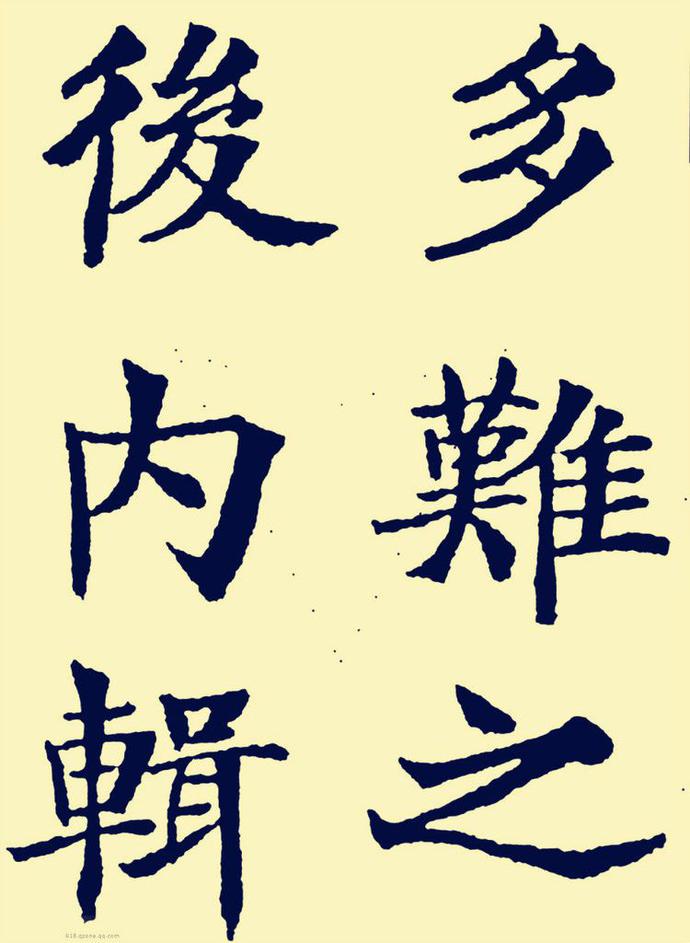 多難之
後内輯
618.qzone.qq.com